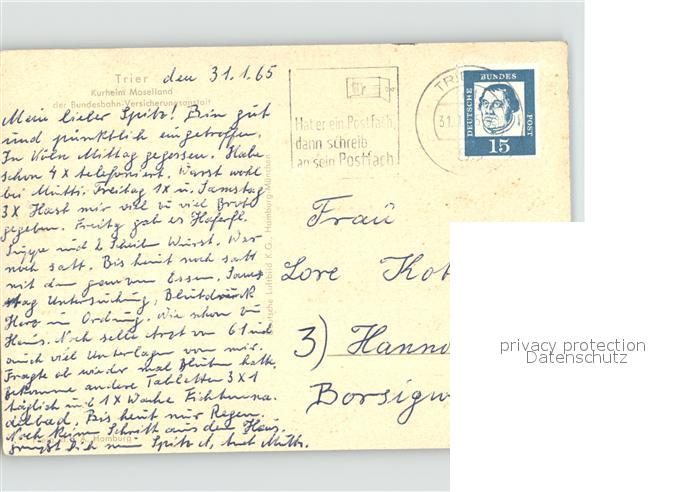 Trier den 31.1.65
Kurheim Moselland
der Bundesbahn-Versicherungsanstalt
Mein lieber Spitz! Bin gut
und pünktlich eingetroffen.
In Köln Mittag gegessen. Habe
schon 4 x telefoniert. Warst wohl
bei Mutti. Freitag 1x u. Samstag
3X Hast mir viel zu viel Brote
gegeben. Freitg gab es Haferfl.
Suppe und 2 Wurst. War
noch satt. Bis heut noch satt
mit dem ganzen Essen. Sams
tag Untersuchung, Blutdruck
Herz in Ordnung. Wie schon zu
Haus. Noch selbe Arzt von 61 und
auch viel Unterlagen von mir.
Fragte ob wieder mal Bluten hatte.
Bekomme andere Tabletten 3 X 1
täglich und 1 X Woche Fichtenna
delbad. Bis heut nur Regen.
Noch keinen Schritt aus dem Haus.
grüßt Dich
Hamburg
Luftbild K.G., Hamburg-München
Hat er ein Postfach,
dann schreib
an sein Postfach
TRIER
31.
DEUTSCHE BUNDES POST
15
Frau
Lore Kot
3) Hanno
Borsigw
privacy protection
Datenschutz